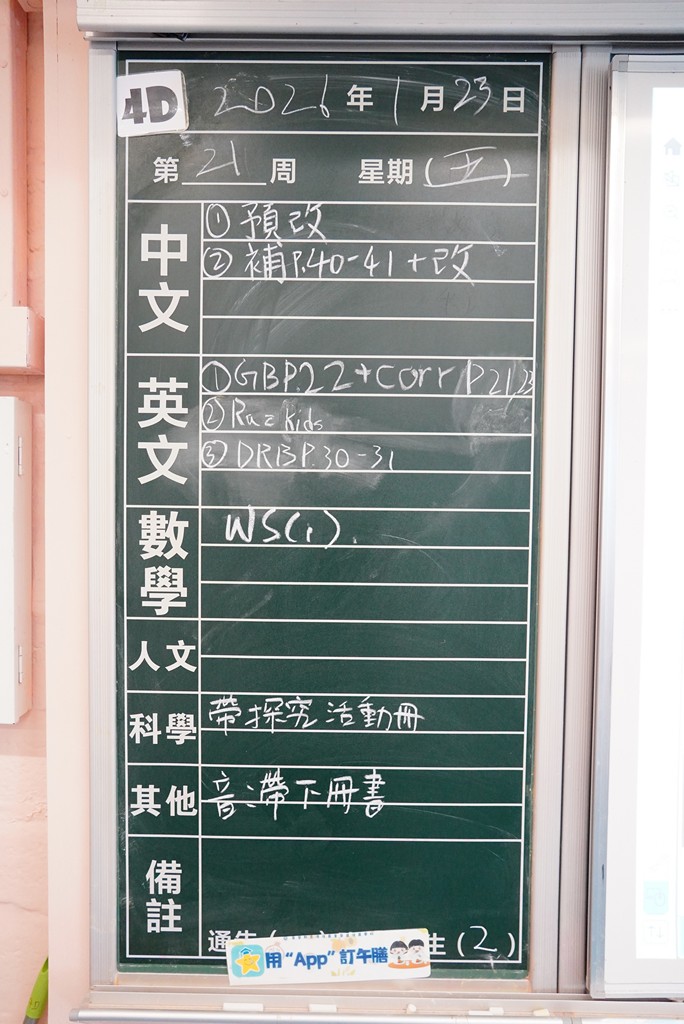 4D
2026年1月23日
第21周 星期(五)
中文
① 預改
② 補P.40-41+改
英文
① GBP.22+corr P21,23
② Raz kids
③ DRBP.30-31
數學
WS(1).
人文
科學
帶探究活動冊
其他
音:帶下冊書
備註
通告(
生(2)
用“App”訂午膳